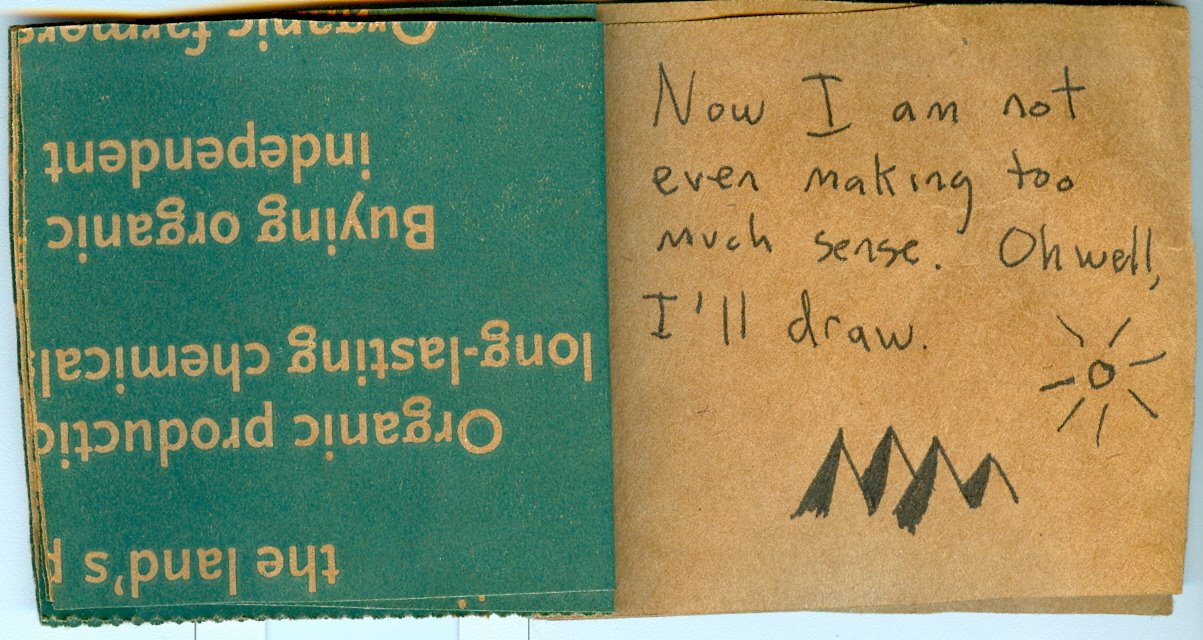 the land's
Organic
long-lasting chemicals
Buying organic
independent
Organic farmers
Now I am not
even making too
much sense. Oh well,
I'll draw.